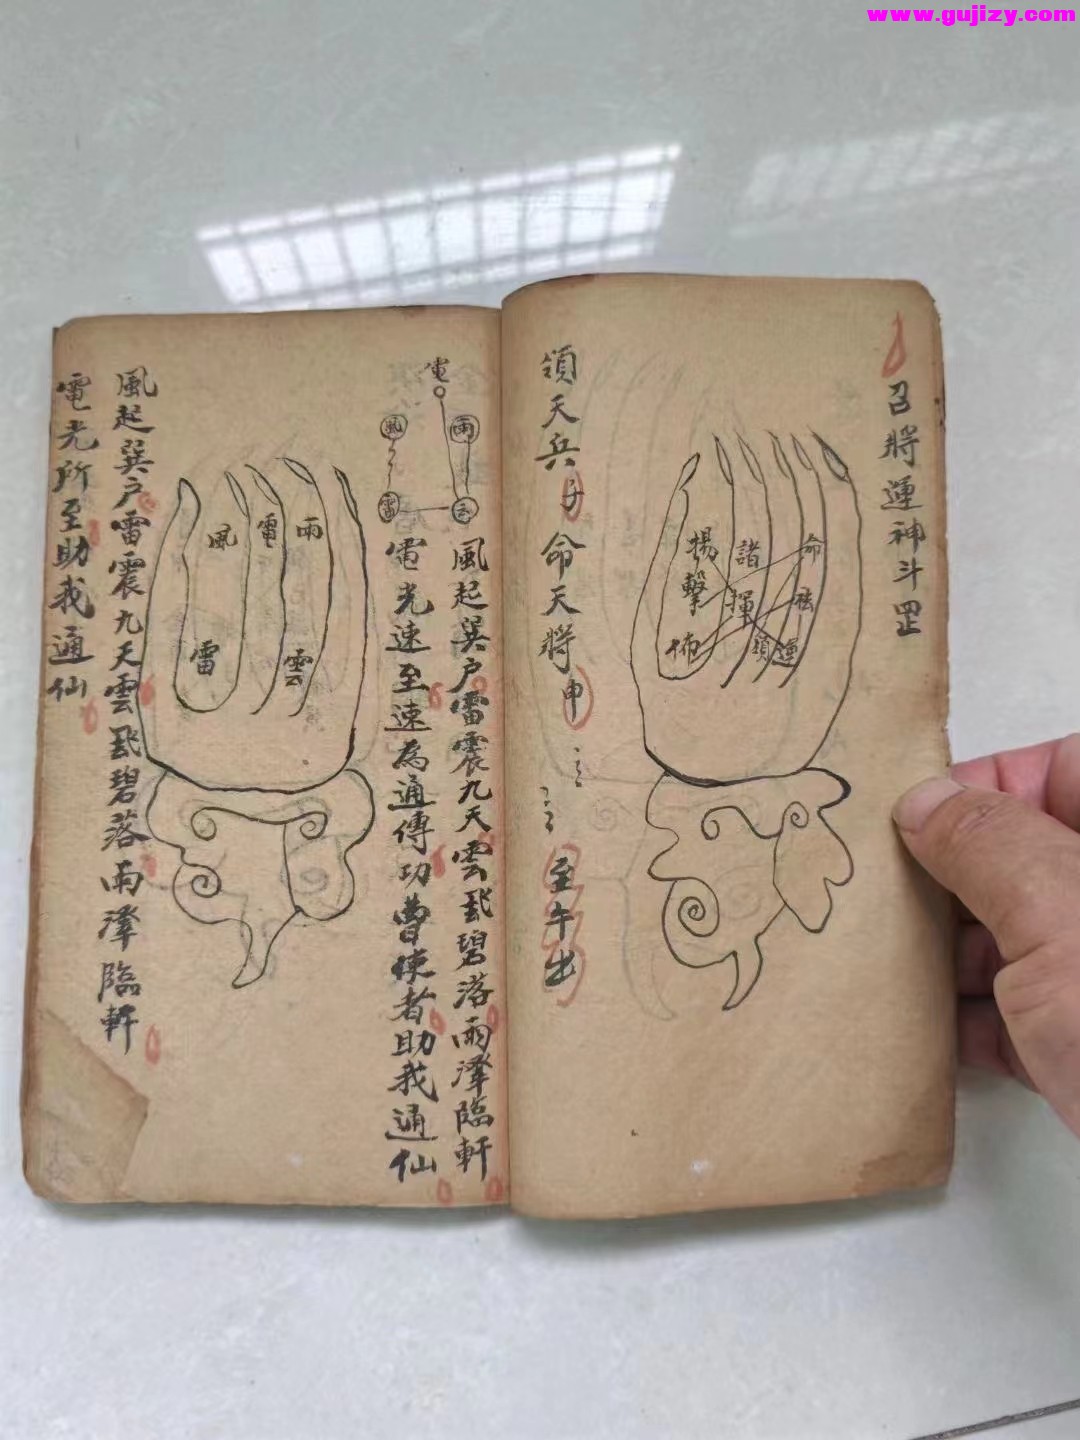 www.gujizy.com
召將運神斗罡
命
祛
諸
揮
揚
擊
佈
領
運
領天兵子命天將申
至午出
電
雨
風
雷
云
風起巽戶雷震九天雲飛碧落雨澤臨軒
電光速至速為通傳功曹使者助我通仙
雨
電
風
雲
雷
風起巽戶雷震九天雲飛碧落雨澤臨軒
電光所至助我通仙